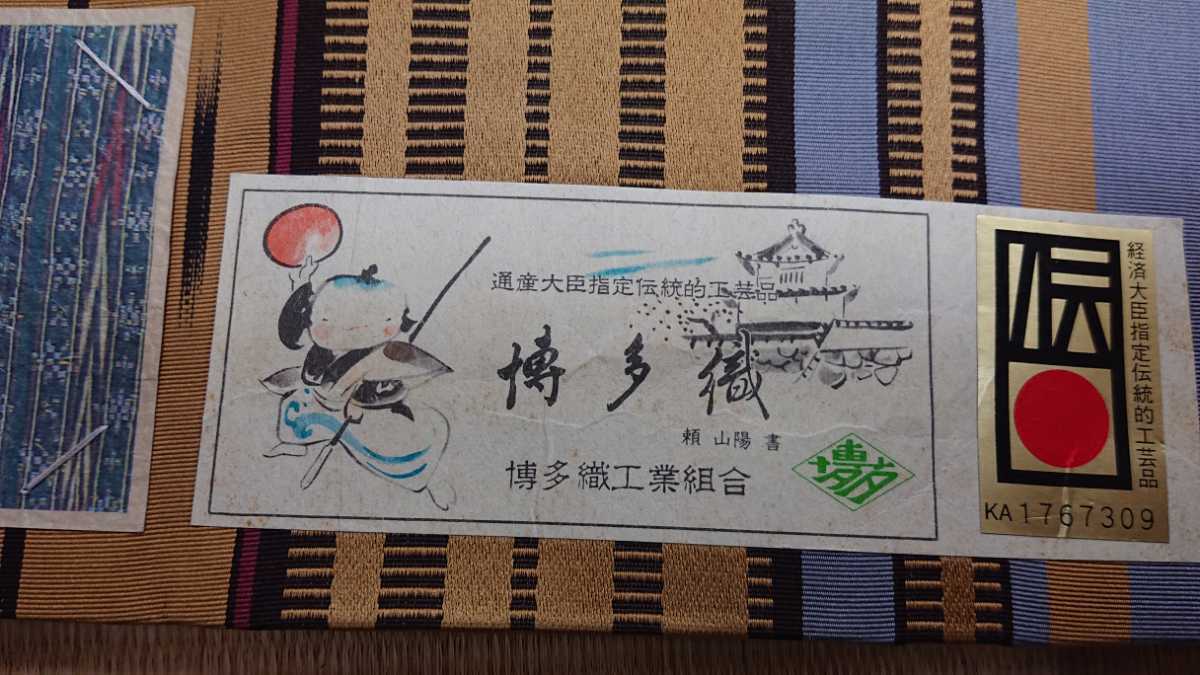 通産大臣指定伝統的工芸品
博多織
頼 山陽 書
博多織工業組合
博多
伝
経済大臣指定伝統的工芸品
KA1767309